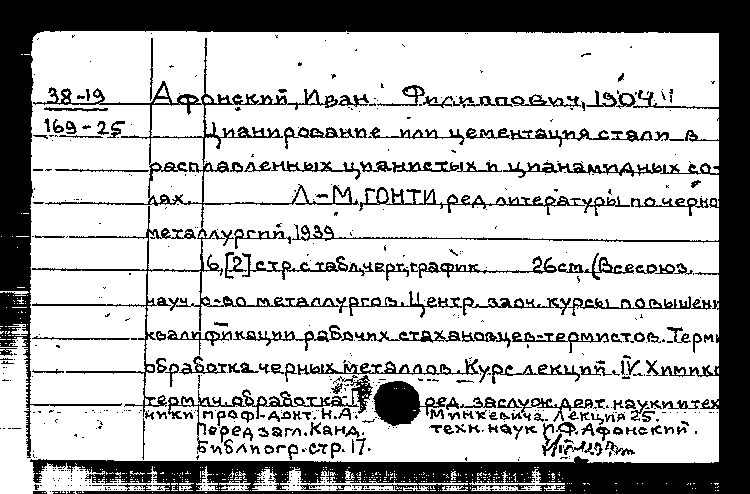 38-19 Афонский, Иван Филиппович, 1904
169-25 Цианирование или цементация стали в
расплавленных цианистых и цианамидных со-
лях. Л.-М., ГОНТИ, ред. литературы по черно
металлургии, 1939
16, [2] стр. с табл., черт., график. 26 cm. (Всесоюз.
науч. о-во металлургов. Центр. заоч. курсы повышени
квалификации рабочих стахановцев-термистов. Терми
обработка черных металлов. Курс лекций. IV. Химико
термич. обработка. ред. заслуж. деят. науки и тех
ники проф.-докт. Н.А. Минкевича. Лекция 25.
Перед загл. Канд. техн. наук И.Ф. Афонский.
Библиогр. стр. 17.